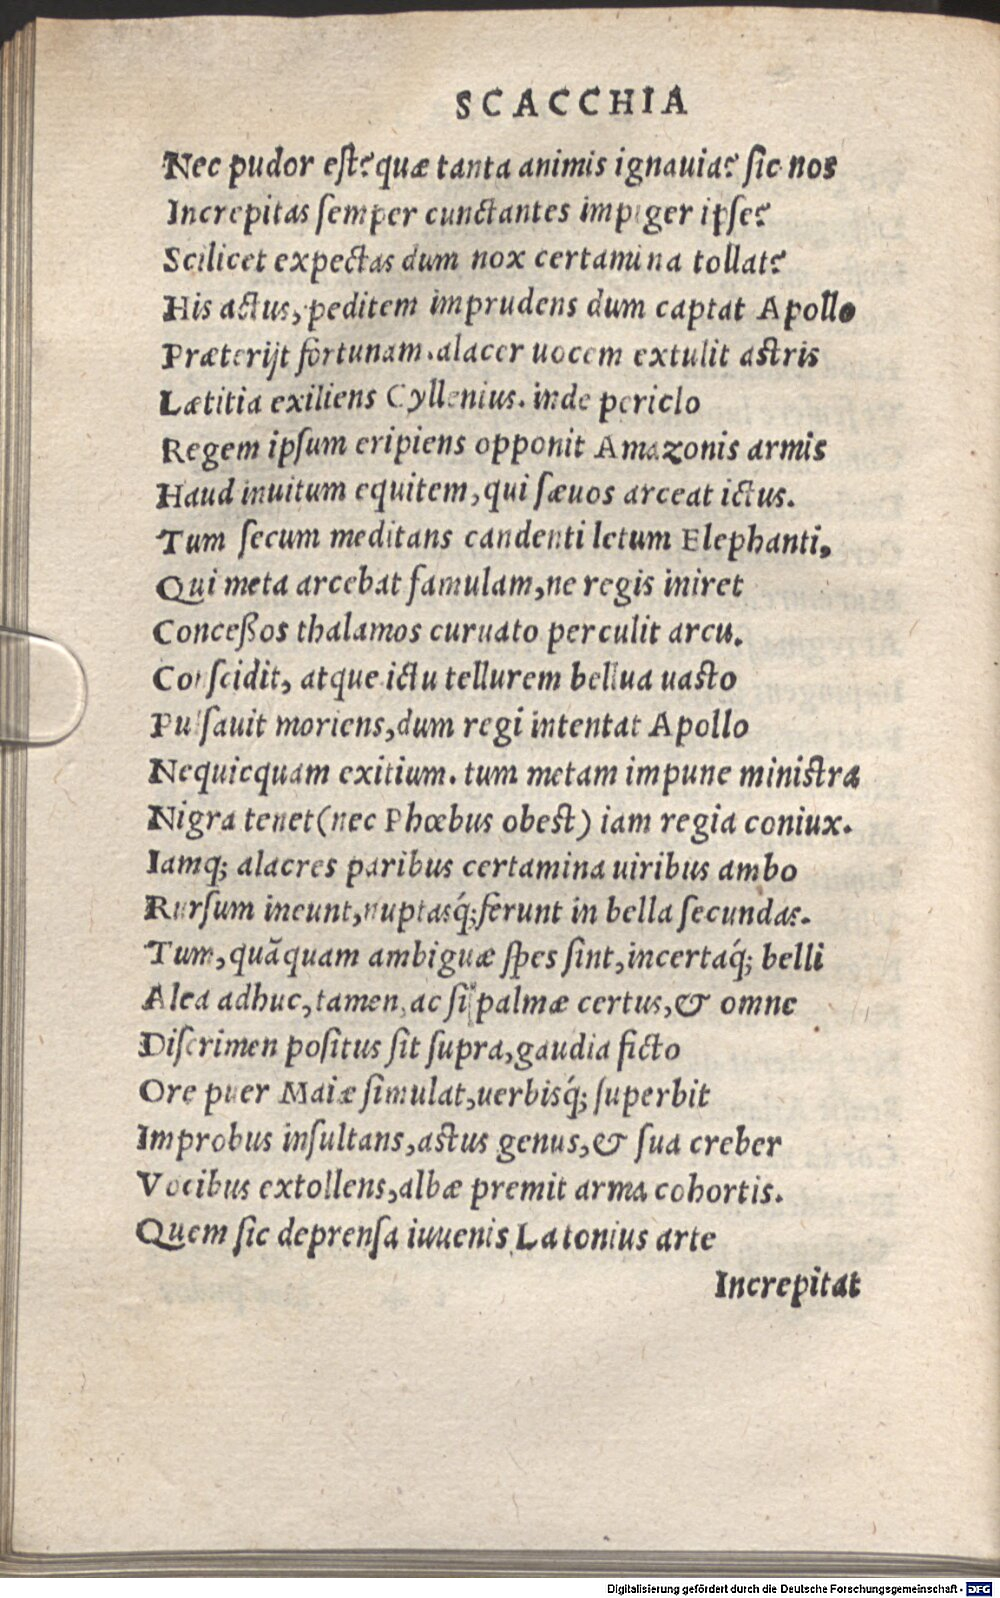 SCACCHIA
Nec pudor est? quæ tanta animis ignauia? sic nos
Increpitas semper cunctantes impiger ipse?
Scilicet expectas dum nox certamina tollat?
His actus, peditem imprudens dum captat Apollo
Præterijt fortunam. alacer uocem extulit astris
Lætitia exiliens Cyllenius. inde periclo
Regem ipsum eripiens opponit Amazonis armis
Haud inuitum equitem, qui sæuos arceat ictus.
Tum secum meditans candenti letum Elephanti,
Qui meta arcebat famulam, ne regis iniret
Conceßos thalamos curuato perculit arcu.
Conscidit, atque ictu tellurem bellua uasto
Pulsauit moriens, dum regi intentat Apollo
Nequicquam exitium. tum metam impune ministra
Nigra tenet (nec Phœbus obest) iam regia coniux.
Iamq; alacres paribus certamina uiribus ambo
Rursum ineunt, nuptasq́; ferunt in bella secundas.
Tum, quãquam ambiguæ spes sint, incertaq́; belli
Alea adhuc, tamen, ac si palmæ certus, & omne
Discrimen positus sit supra, gaudia ficto
Ore puer Maiæ simulat, uerbisq́; superbit
Improbus insultans, astus genus, & sua creber
Vocibus extollens, albæ premit arma cohortis.
Quem sic deprensa iuuenis Latonius arte
Increpitat
Digitalisierung gefördert durch die Deutsche Forschungsgemeinschaft - DFG